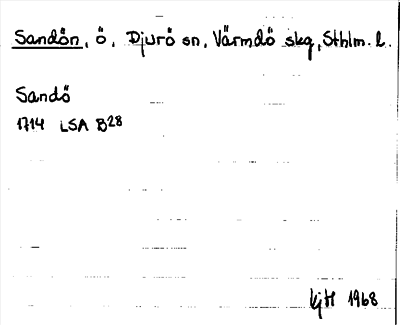 Sandön, ö, Djurö sn, Värmdö skg, Sthlm. l.
Sandö
1714 LSA B28
1968